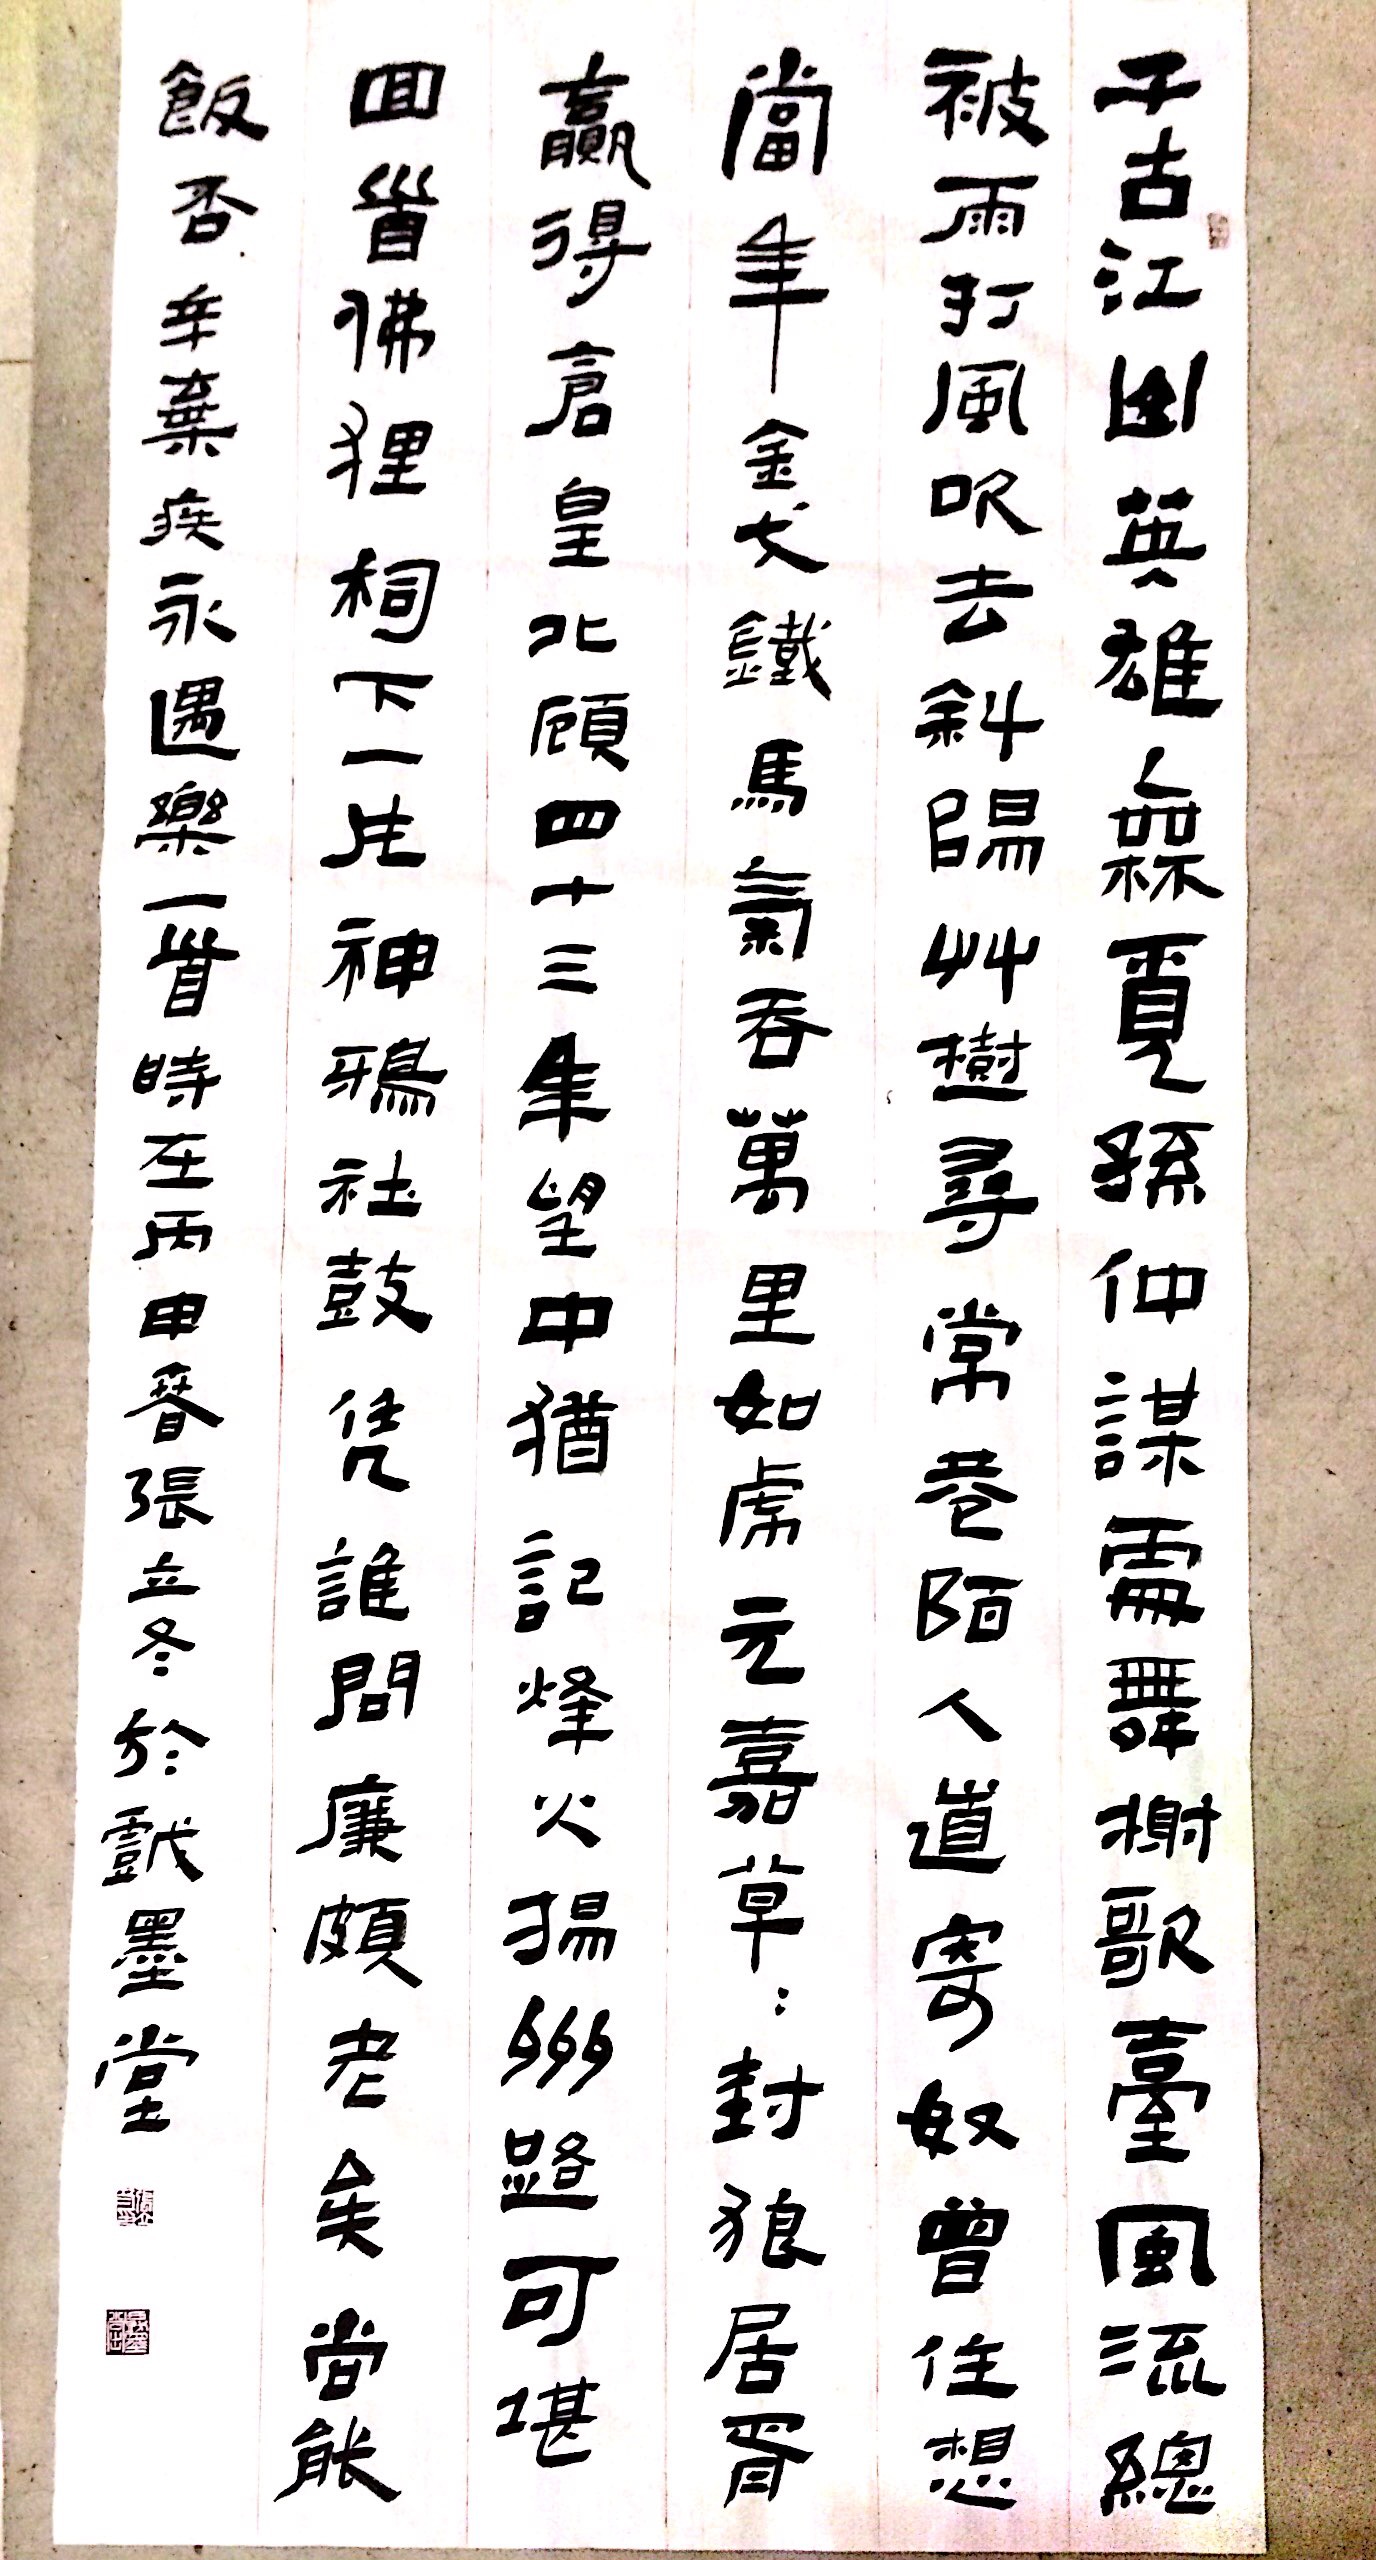 千古江山英雄無覓孫仲謀處舞榭歌臺風流總
被雨打風吹去斜陽艸樹尋常巷陌人道寄奴曾住想
當年金戈鐵馬氣吞萬里如虎元嘉草草封狼居胥
贏得倉皇北顧四十三年望中猶記烽火揚州路可堪
回首佛狸祠下一片神鴉社鼓凭誰問廉頗老矣尚能
飯否辛棄疾永遇樂一首時在丙申春張立冬於戲墨堂